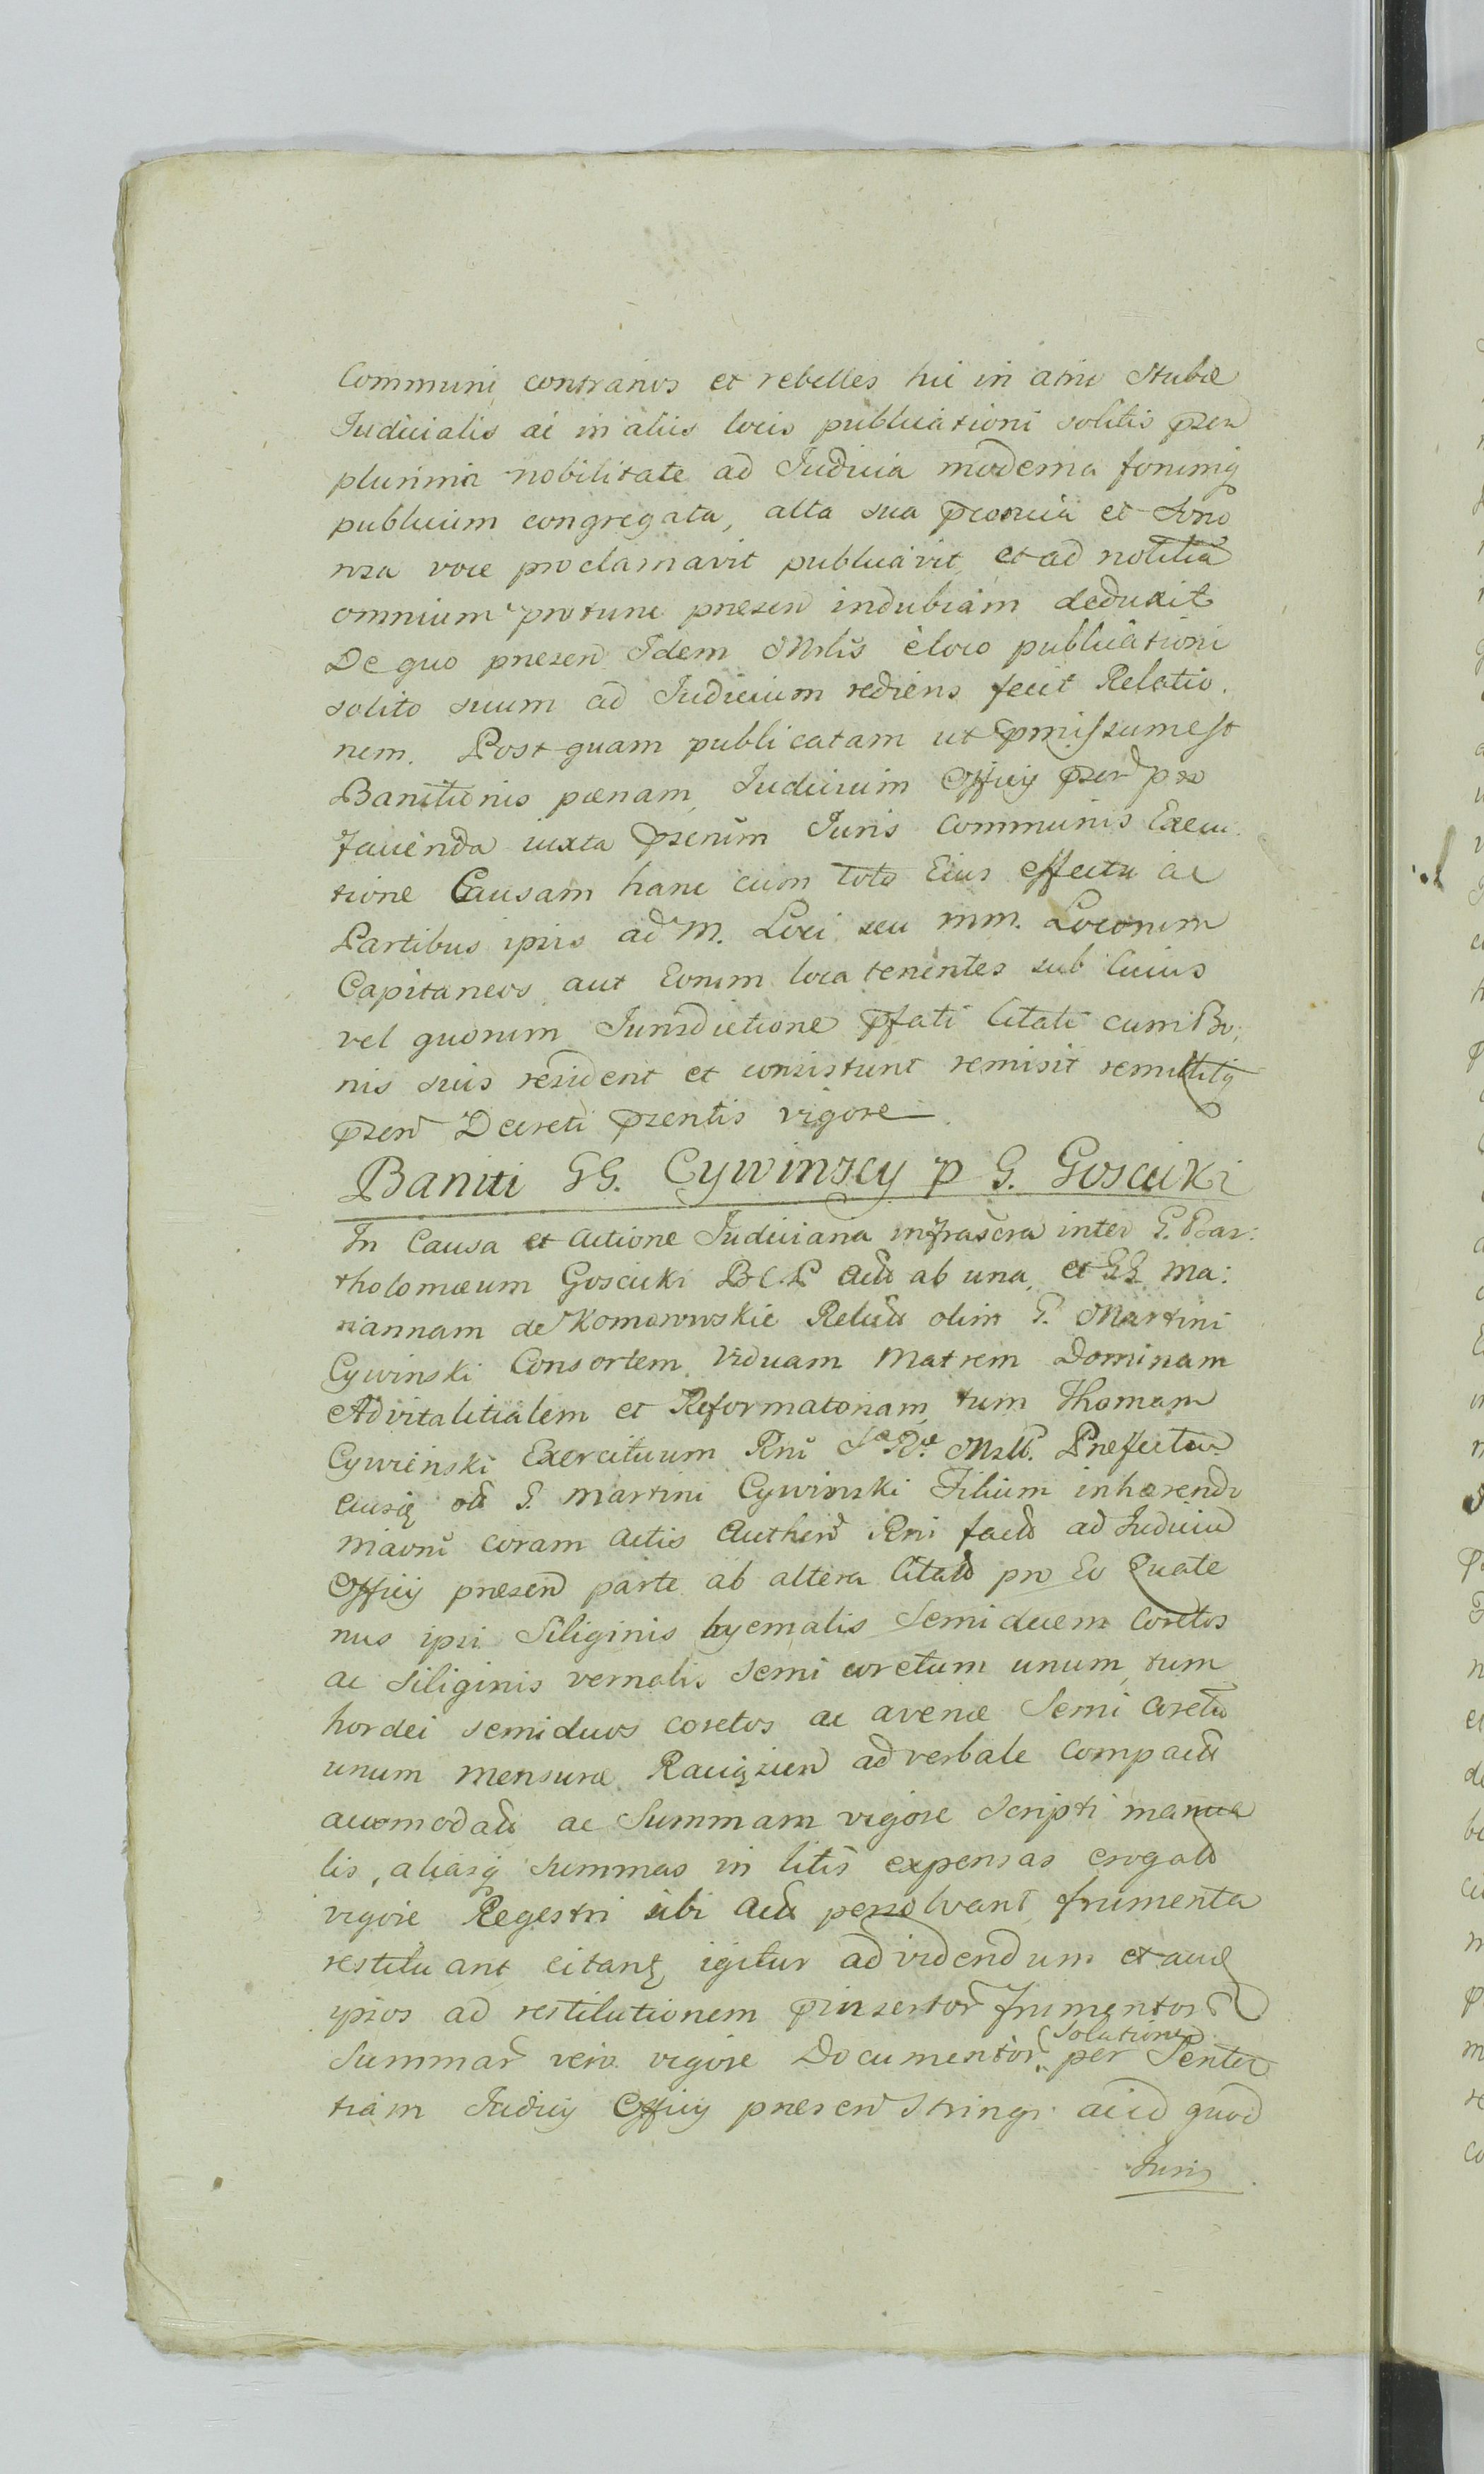 Communi contrarios et rebelles hic in atrio Stubæ
Judicialis ac in aliis locis publicationi solitis pzen
plurima nobilitate ad Judicia moderna forumq
publicum congregata, alta sua et Sono
rosa voce proclamavit publicavit et ad notitia
omnium protunc presen indubiam deduxit
De quo presen Idem Mrlis e loco publicationi
solito suum ad Judicium rediens fecit Relatio.
nem. Post quam publicatam ut pmissum est
Banitionis pœnam, Judicium Officij pzen pro
facienda iuxta pzcrum Juris Communis Execu.
tione Causam hanc cum toto Eius effectu ac
Partibus ipsis ad M. Loci seu MM. Locorum
Capitaneos aut Eorum loca tenentes sub Cuius
vel quorum Jurisdictione pfati Citati cum Bo:
nis suis resident et consistunt remisit remittitq
pzen Decreti pzentis vigore
Baniti GG. Cywinscy p G. Goscicki
In Causa et Actione Judiciaria infrascra inter G. Bar:
tholomæum Goscicki B C P ab una et GG. Ma:
riannam de Komorowskie Relicta olim G. Martini
Cywinski Consortem Viduam Matrem Dominam
Advitalitialem et Reformatoriam, tum Thomam
Cywinski Exercituum Rni Præfectum
eiusq G. Martini Cywinski Filium inhærendo
coram Actis Authen Rni facto ad Judiciu
Officij presen parte ab altera Citato pro Eo Quate
nus ipsi Siliginis hyemalis Semi decem Coretos
ac Siliginis vernalis Semi coretum unum, tum
hordei semiduos coretos ac avenæ Semi Coretu
unum mensuræ Raciązien ad verbale Compactu
accomodati ac Summam vigore Scripti manua
lis, aliasq Summas in litis expensas erogato
vigore Regestri sibi persolvant, frumenta
restituant citantq igitur ad videndum et
ipsos ad restitutionem pinsertor frumentor
Summar vero vigore Documentor solutione per Senten
tiam Judicij Officij presen Stringi aliud quod
Juris